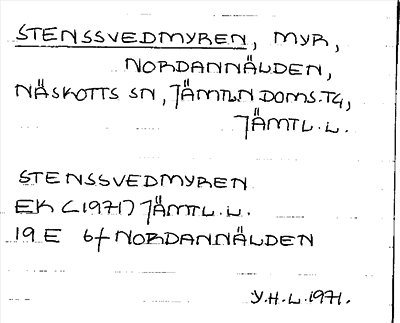 STENSSVEDMYREN, MYR,
NORDANNÄLDEN,
NÄSKOTTS SN, JÄMTLN DOMS. TG,
JÄMTL. L.
STENSSVEDMYREN
EK (1971) JÄMTL. L.
19 E 6f NORDANNÄLDEN
Y.H.L. 1971.